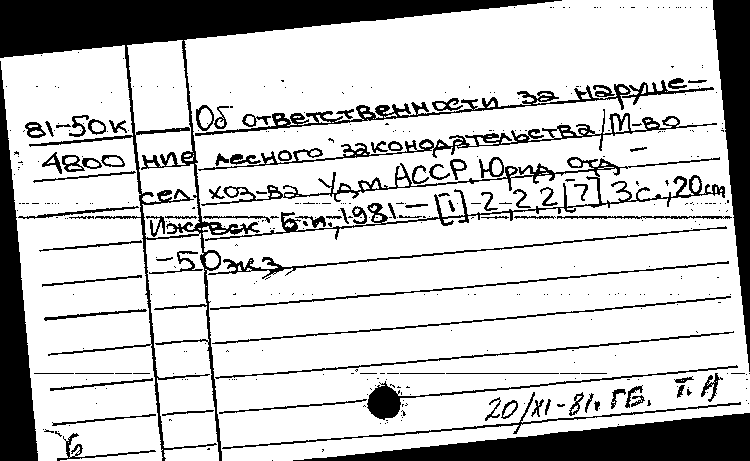 81-50к Об ответственности за наруше-
4800 ние лесного законодательства / М-во
сел. хоз-ва Удм. АССР. Юрид. отд. —
Ижевск: Б. и., 1981. — [1], 2, 2, 2, [7], 3 с.; 20 cm
-50 экз.
20/XI-81. ГБ. Т. А
б